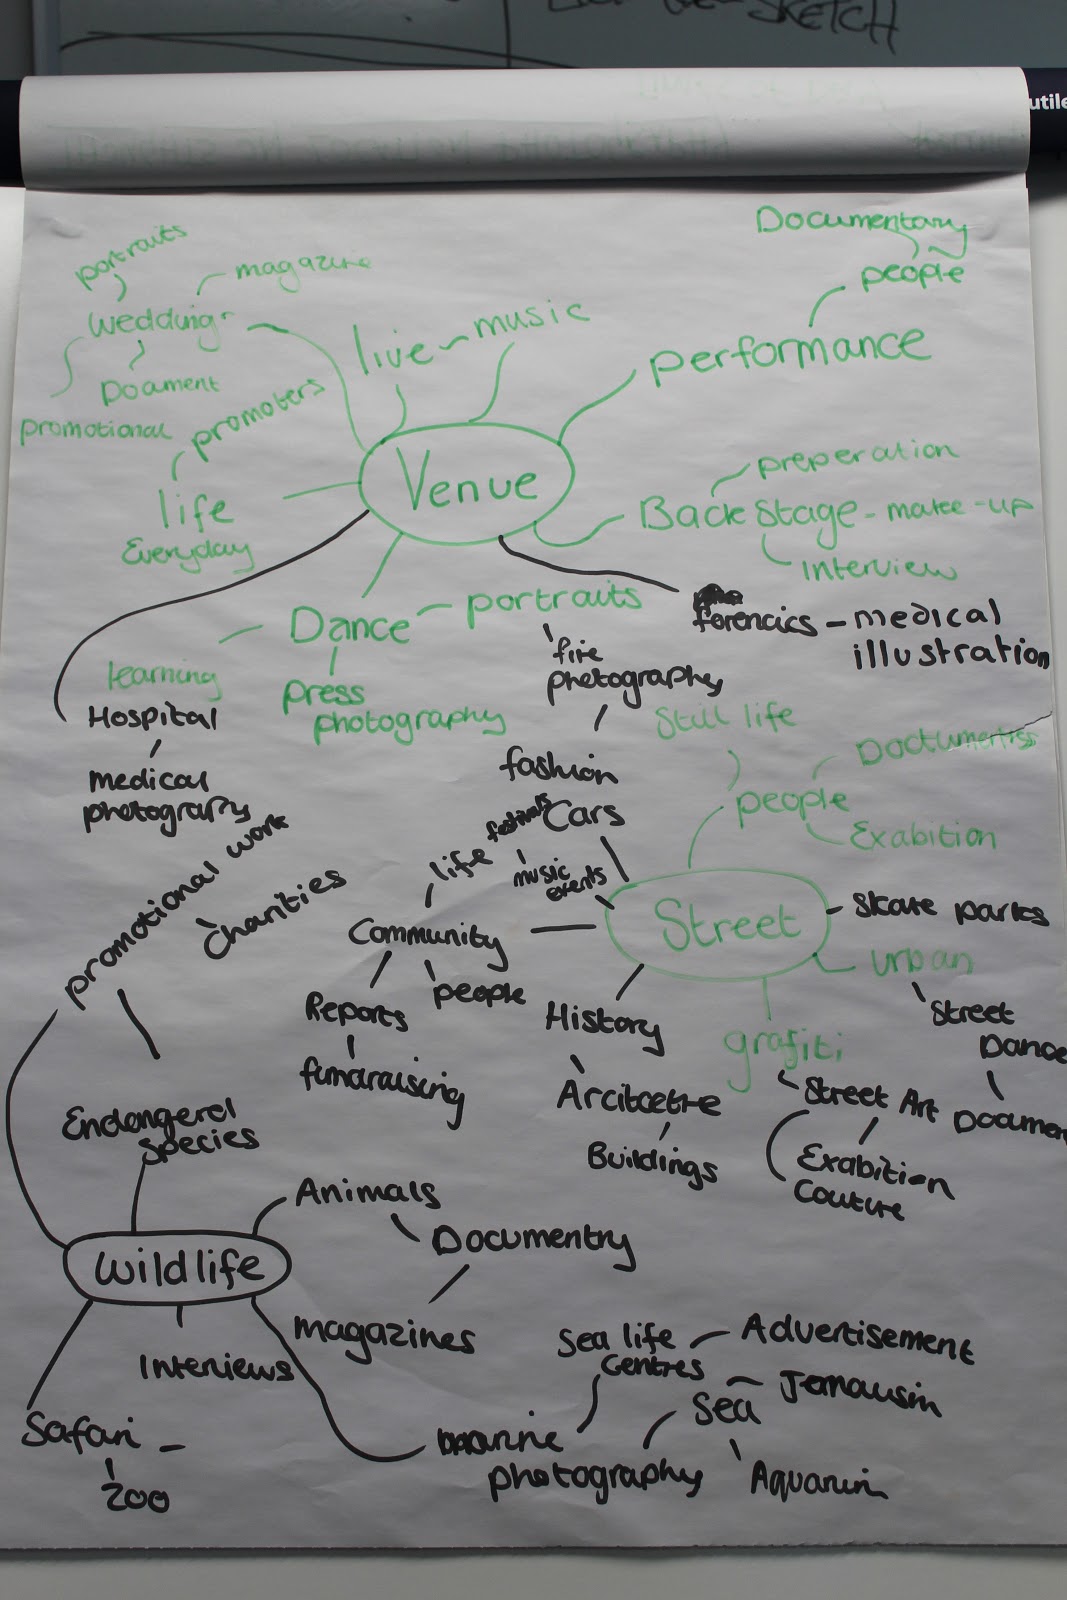 SKETCH
utile
Documentary
people
portraits
magazine
wedding
live
music
performance
Document
promotional
promoters
Venue
preperation
life
Everyday
Back Stage - make-up
interview
Dance
portraits
forencics - medical
illustration
learning
fire
photography
press
photography
Hospital
Still life
medical
photography
fashion
people
Exabition
promotional work
festivals
Cars
life
music
events
Charities
Community
Street
Skate parks
urban
people
Reports
History
Street
Dance
grafiti
fundraising
Arcitcetre
Street Art
Documen
Endangered
species
Buildings
Exabition
Couture
Animals
Documentry
wildlife
magazines
Interviews
Sea life
Centres
Advertisement
Sea
Safari -
marine
photography
zoo